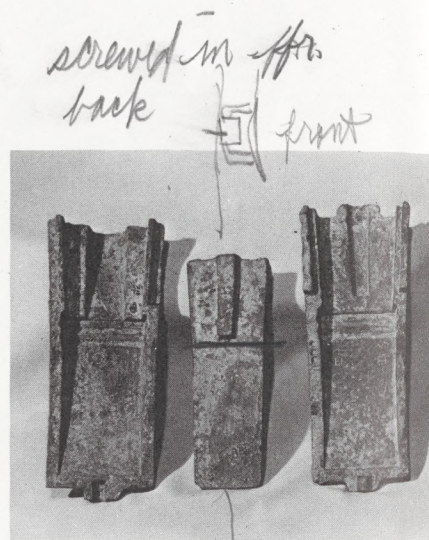 screwed in ffr.
back
front